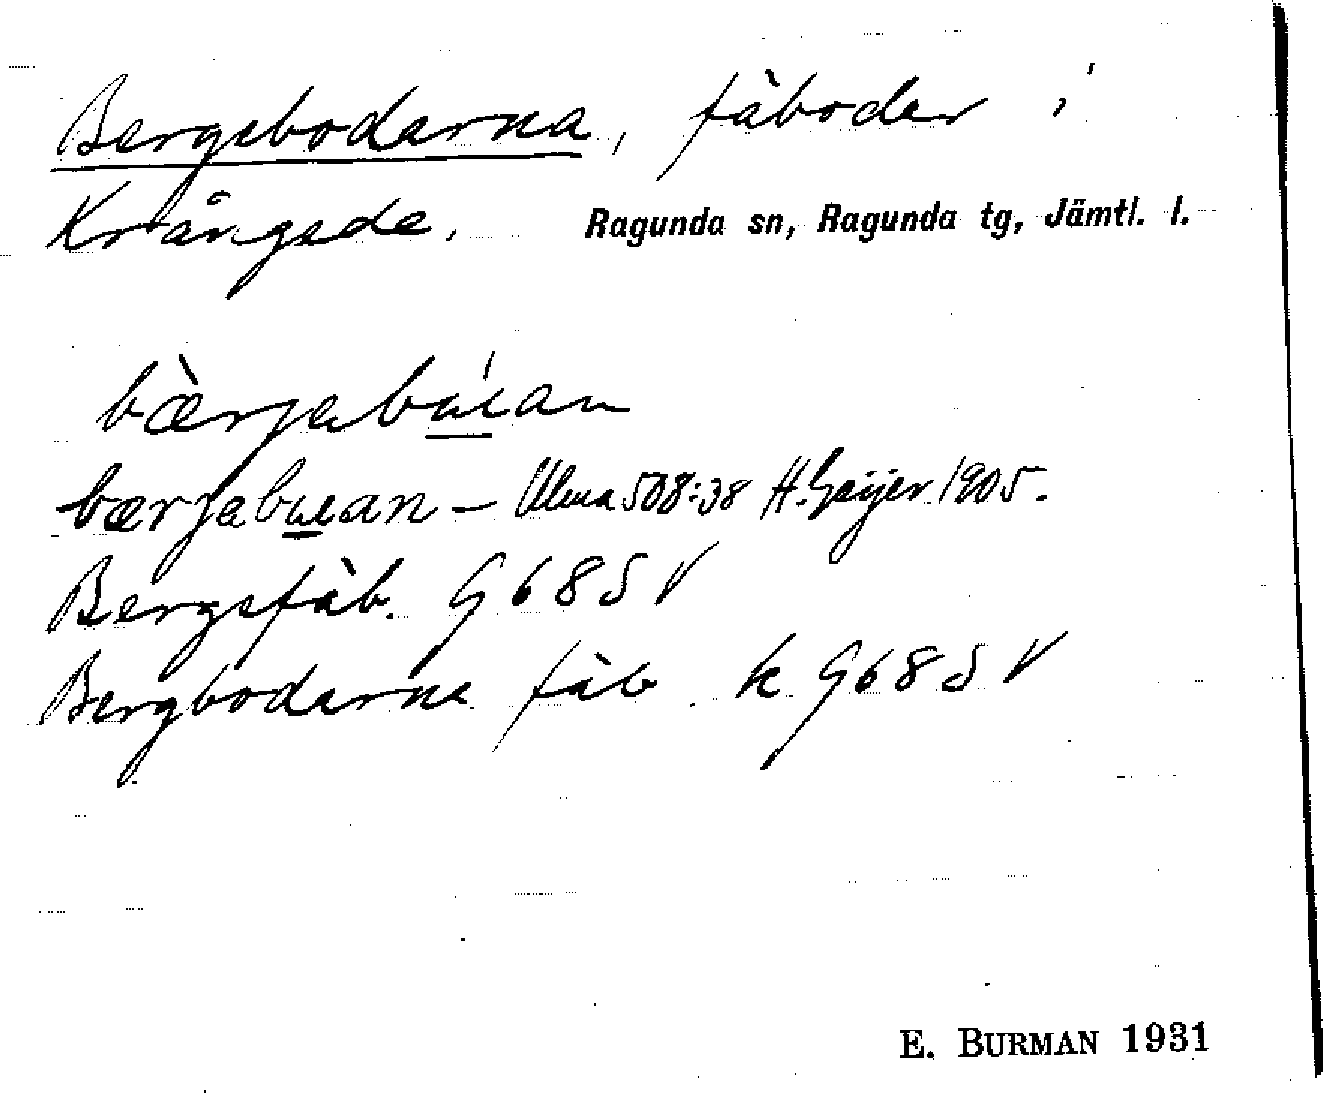 Bergebodarna, fäboder i
Krångede. Ragunda sn, Ragunda tg, Jämtl. l.
bærjabúan
bærjabuan – Ulma 508:38 H. Geijer 1905.
Bergsfäb. G 68 S V
Bergbodarna fäb. k G 68 S V
E. BURMAN 1931